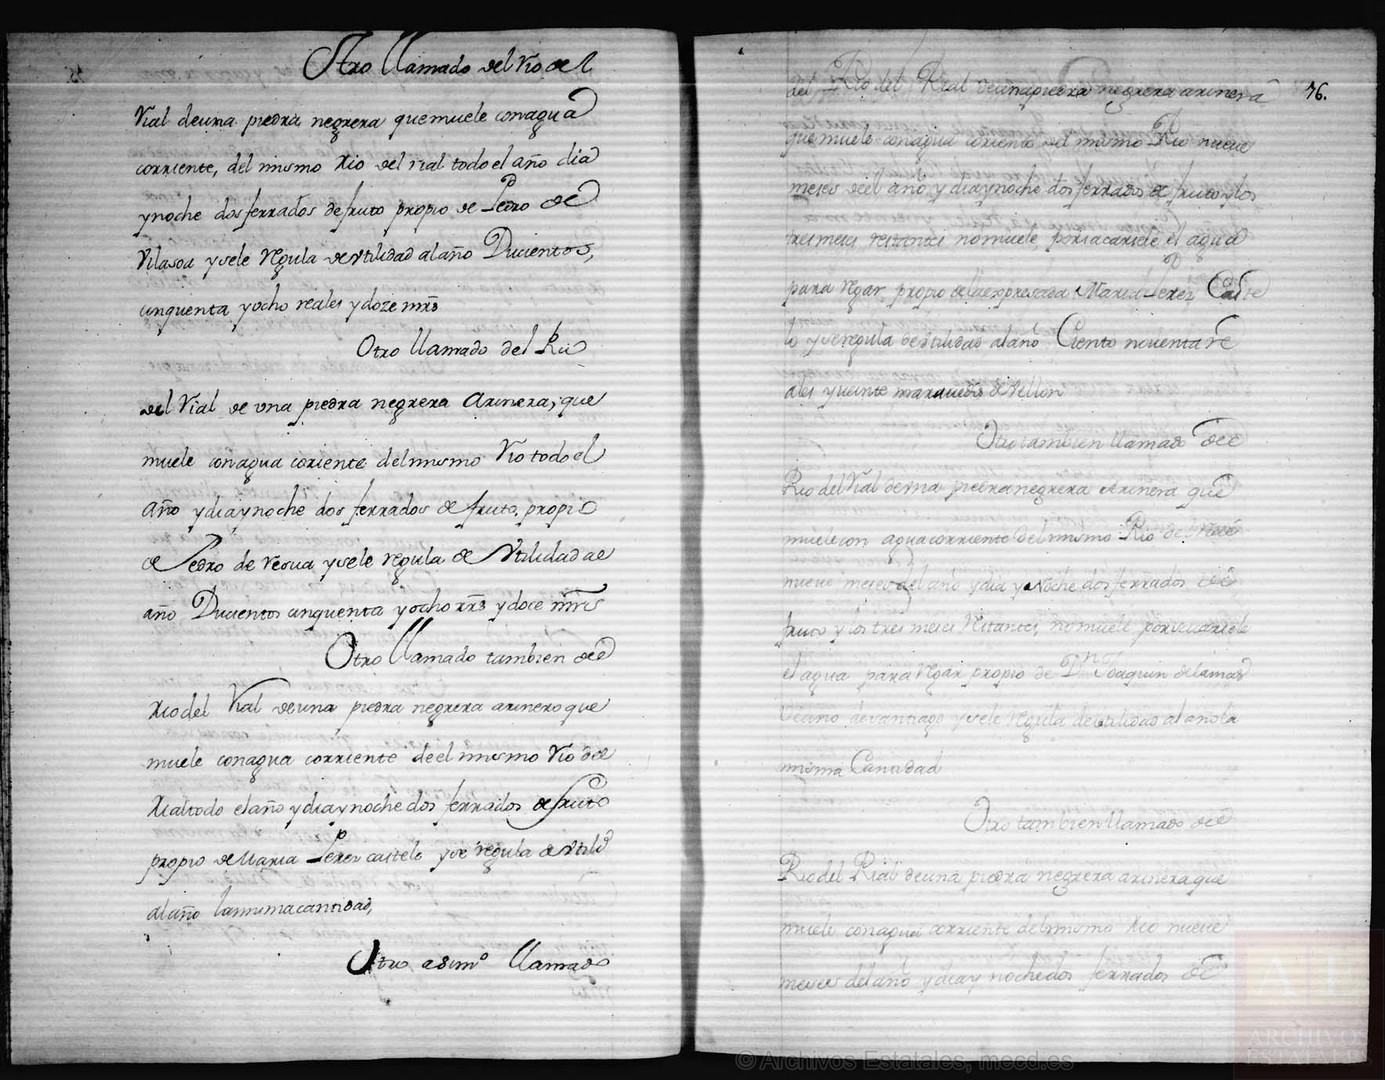 Otro llamado del rio del
Rial deuna piedra negrera que muele con agua
corriente, del mismo Rio del rial todo el año dia
y noche dos ferrados de fruto propio de Pedro de
Vilasoa y sele regula de utilidad al año Ducientos,
cinquenta y ocho reales y doze mrs
Otro llamado del Rio
del Rial de una piedra negrera arinera, que
muele con agua coriente del mismo Rio todo el
año y dia y noche dos ferrados de fruto, propio
de Pedro de Vesua y sele regula de Utilidad al
año Ducientos cinquenta y ocho rrs y doce mrs
Otro llamado tambien del
Rio del Rial de una piedra negrera arinero que
muele con agua corriente de el mismo Rio del
Rial todo el año y dia y noche dos ferrados de fruto
propio de Maria Perez castelo y se regula de utilid
al año la misma cantidad,
Otro asimo llamado
del Rio del Rial de una piedra negrera arinera 76.
que muele con agua coriente del mismo Rio nueve
meses de el año y dia y noche dos ferrados de fruto y los
tres meses restantes no muele por sacarsele el agua
para regar propio de la expresada Maria Perez Caste
lo y se regula de utilidad al año Ciento noventa re
ales y veinte maravedis de vellon
Otro tambien llamado del
Rio del Rial de una piedra negrera arinera que
muele con agua corriente del mismo Rio de
nueve meses del año y dia y noche dos ferrados de
fruto y los tres meses restantes no muele por sacarsele
el agua para regar propio de Dn Joaquin de lamas
Vecino de santiago y sele regula de utilidad al año la
misma Cantidad
Otro tambien llamado del
Rio del Rial de una piedra negrera arinera que
muele con agua corriente del mismo Rio nueve
meses del año y dia y noche dos ferrados de
© Archivos Estatales, mecd.es
ARCHIVOS
ESTATALES